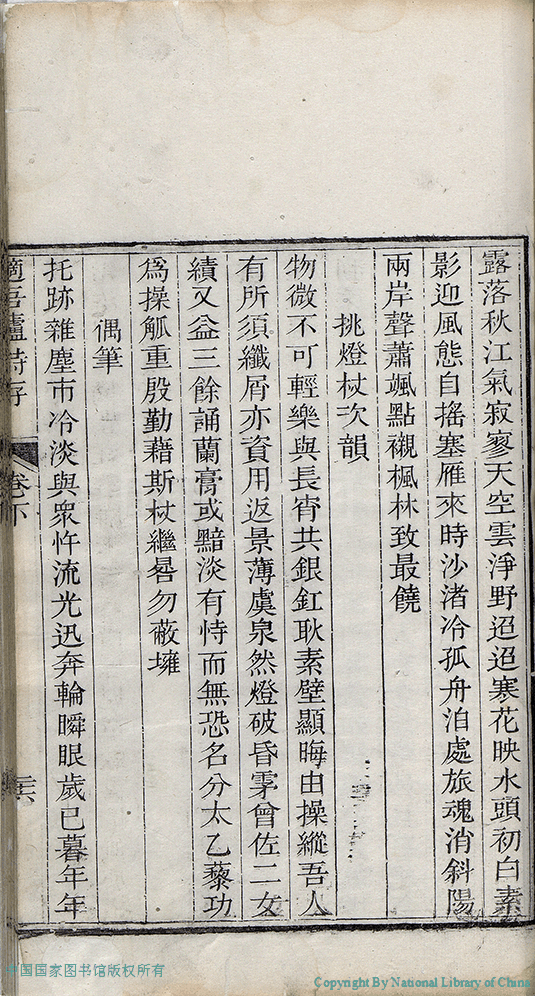 露落秋江氣寂寥天空雲淨野迢迢寒花映水頭初白素
影迎風態自搖塞雁來時沙渚冷孤舟泊處旅魂消斜陽
兩岸聲蕭颯點襯楓林致最饒
挑燈杖次韻
物微不可輕樂與長宵共銀釭耿素壁顯晦由操縱吾人
有所須纖屑亦資用返景薄虞泉然燈破昏雺曾佐二女
績又益三餘誦蘭膏或黯淡有恃而無恐名分太乙藜功
爲操觚重殷勤藉斯杖繼晷勿蔽壅
偶筆
托跡雜塵市冷淡與衆忤流光迅奔輪瞬眼歲已暮年年
適吾廬詩存
卷下
中国国家图书馆版权所有
Copyright By National Library of China